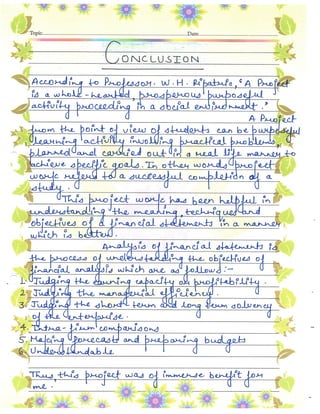 Topic Date
CONCLUSION
According to Professor. W. H. "A Project
is a whole-hearted, prosperous purposeful
activity proceeding in a social environment."
A Project
from the point of view of students can be purposeful
learning activity involving practical problems,
planned and carried out in a real life manner to
achieve specific goals. In other words project
work refers to a successful completion of a
study.
This project work has been helpful in
understanding the meaning, techniques and
objectives of a financial statements in a manner
which is better.
Analysis of financial statements is
the process of understanding the objectives of
financial analysis which are as follows:-
1. Judging the earning capacity or profitability.
2. Judging the managerial efficiency.
3. Judging the short term and long term solvency
of the enterprise.
4. Intra-firm comparisons
5. Making forecasts and preparing budgets
6. Understandable
Thus, this project was of immense benefit for
me.